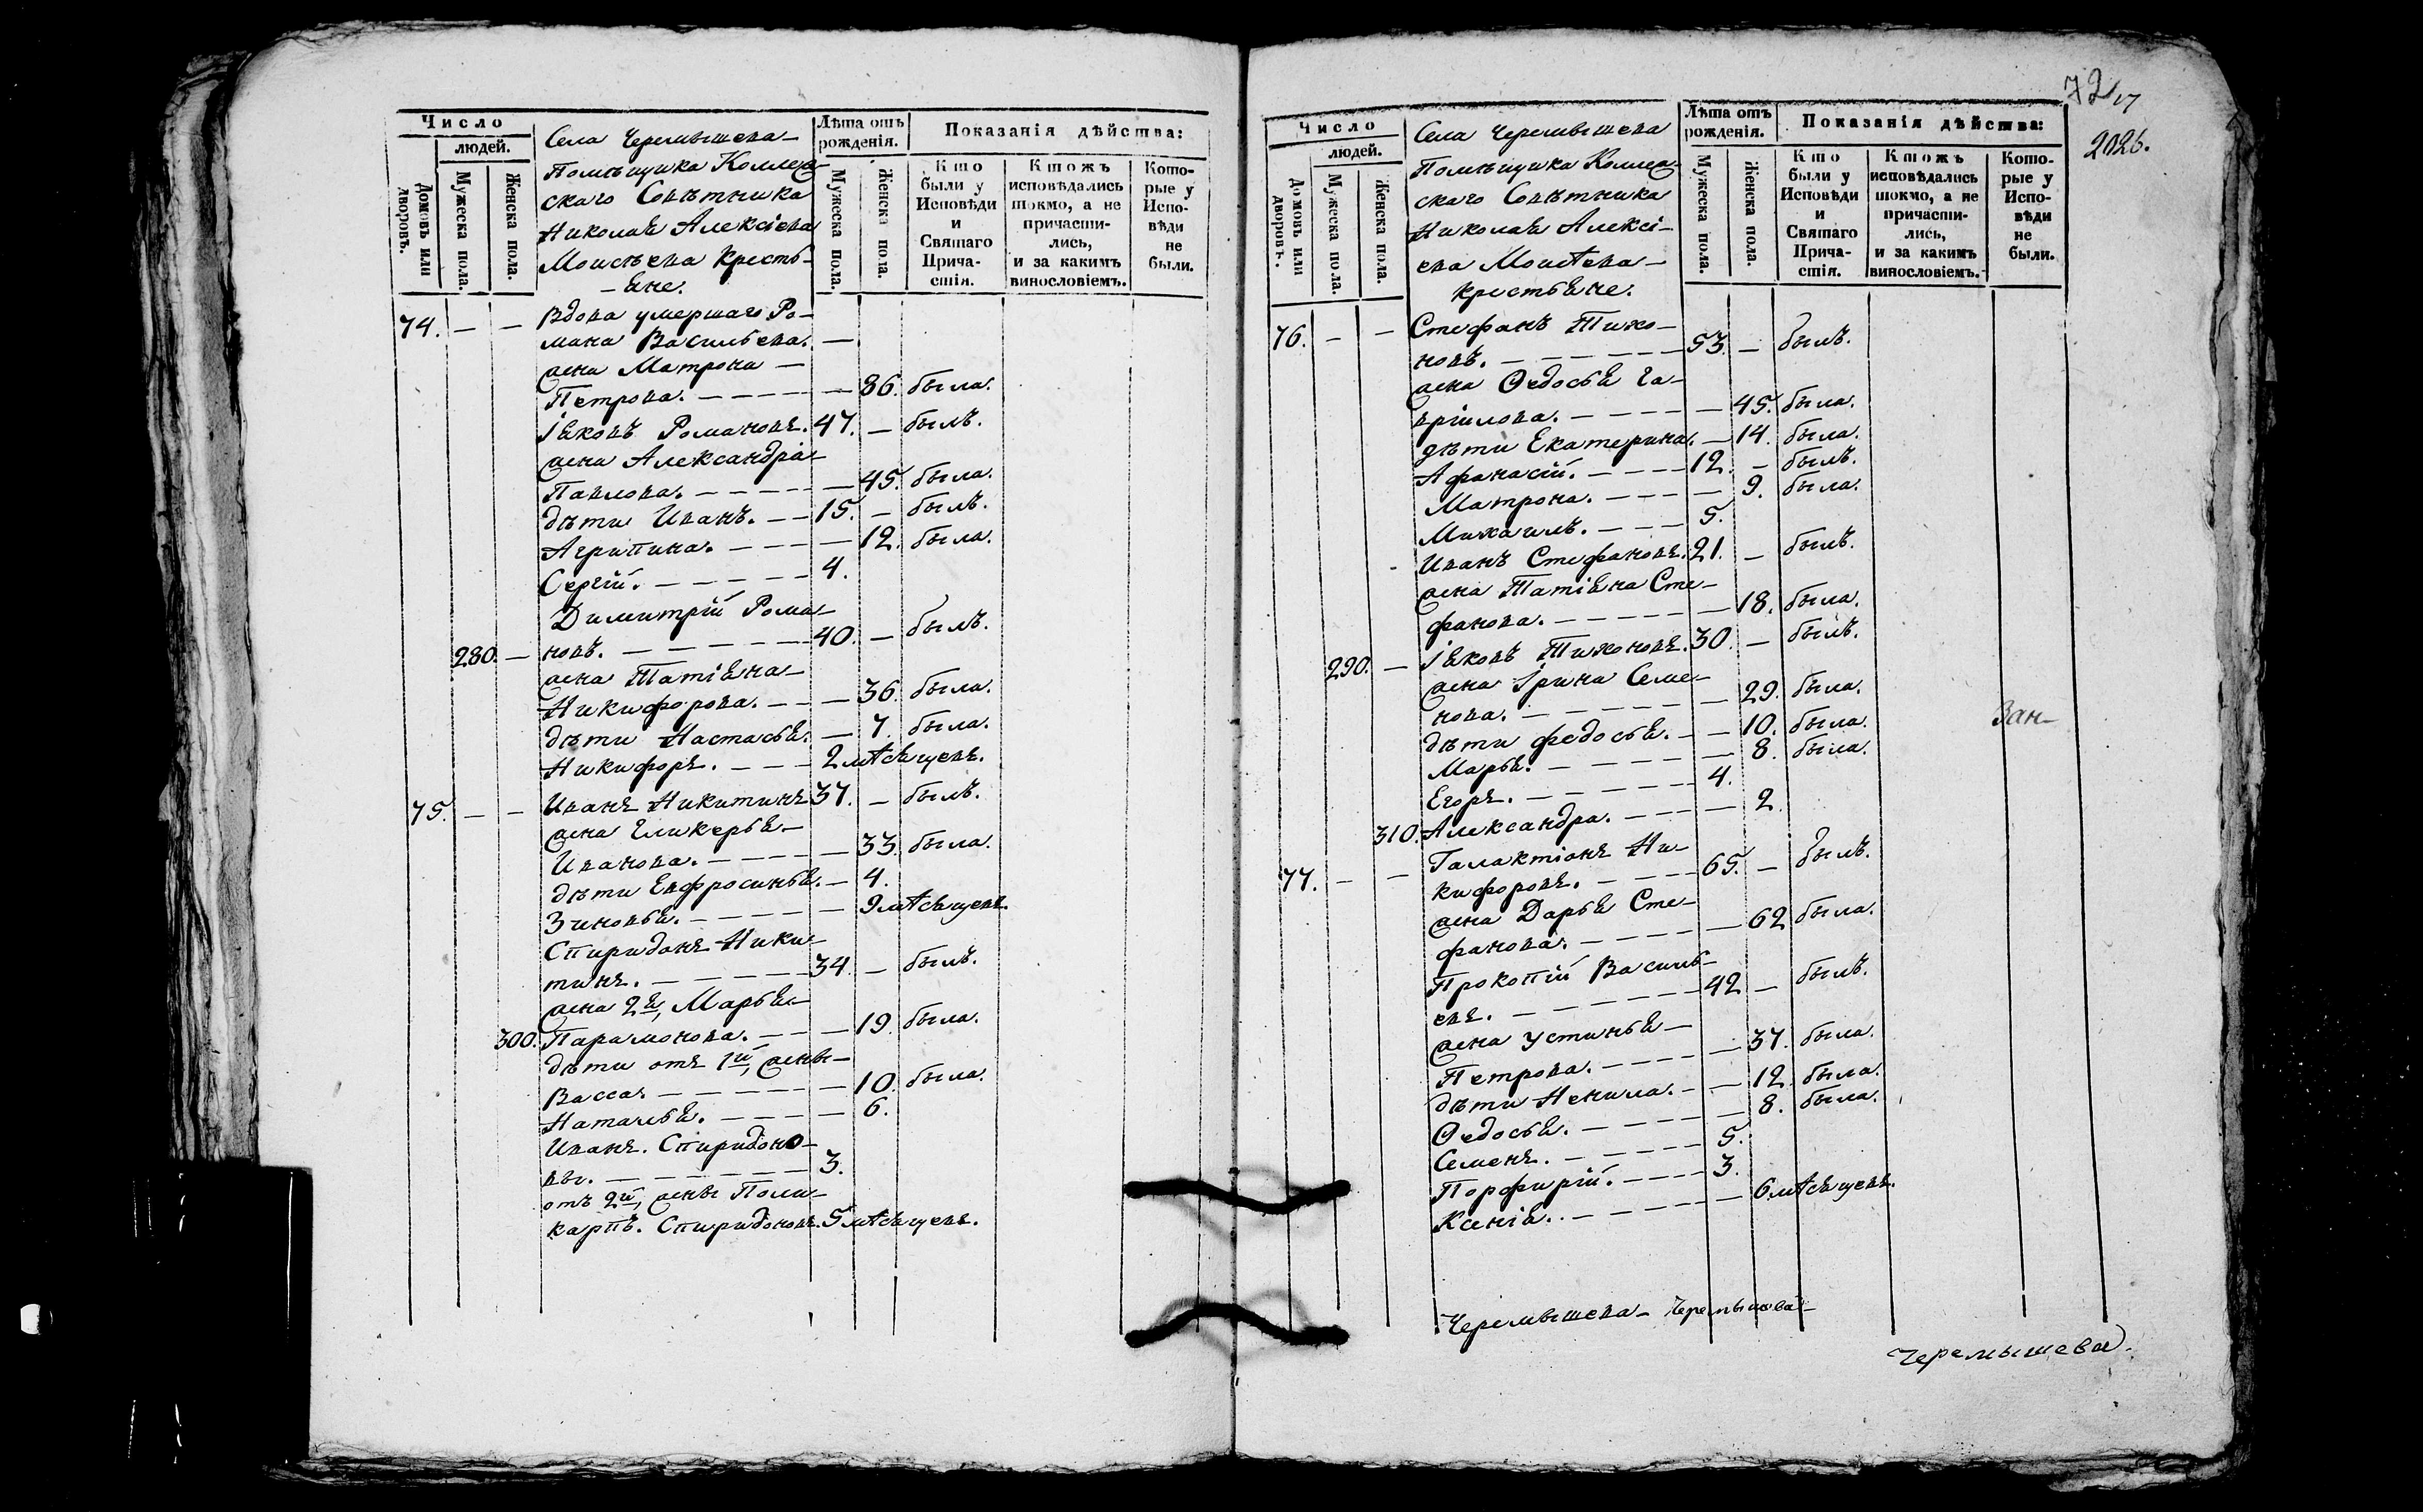 Число
людей.
Домовъ или дворовъ.
Мужеска пола.
Женска пола.
Села Черемышева
Помѣщика Коллеж-
скаго Совѣтника
Николая Алексіева
Моисѣева Кресть-
-яне.
Лѣта отъ рожденія.
Мужеска пола.
Женска пола.
Показанія дѣйства:
Кто были у Исповѣди и Святаго Прича-стія.
Ктожъ исповѣдались токмо, а не причасти-лись, и за какимъ винословіемъ.
Кото-рые у Испо-вѣди не были.
74. — — Вдова умершаго Ро-
мана Васильева. —
жена Матрона —
Петрова. — — 86. была.
Іяковъ Романовъ. 47. — былъ.
жена Александра
Павлова. — — 45. была.
дѣти Иванъ. — 15. — былъ.
Агрипина. — — 12. была.
Сергій. — 4.
Димитрій Рома-
280. — новъ. — 40. — былъ.
жена Татіяна
Никифорова. — — 36. была.
дѣти Настасья. — 7. была.
Никифоръ. — 2 мѣсяцевъ.
75. — — Иванъ Никитинъ 37. — былъ.
жена Гликерья
Иванова. — — 33. была.
дѣти Евфросинья. — 4.
Зиновья. — — 9 мѣсяцевъ.
Спиридонъ Ники-
тинъ. — 34. — былъ.
жена 2я, Марья
300. Парамонова. — — 19. была.
дѣти отъ 1й, жены
Васса. — — 10. была.
Наталья. — — 6.
Иванъ. Спиридоно-
вы. — 3.
отъ 2й, жены Поли-
карпъ. Спиридоновъ. 5 мѣсяцевъ.
72
17
2026.
Число
людей.
Домовъ или дворовъ.
Мужеска пола.
Женска пола.
Села Черемышева
Помѣщика Коллеж-
скаго Совѣтника
Николая Алексі-
ева Моисѣева
крестьяне.
Лѣта отъ рожденія.
Мужеска пола.
Женска пола.
Показанія дѣйства:
Кто были у Исповѣди и Святаго Прича-стія.
Ктожъ исповѣдались токмо, а не причасти-лись, и за какимъ винословіемъ.
Кото-рые у Испо-вѣди не были.
76. — — Стефанъ Тихо-
новъ. — 53. — былъ.
жена Ѳедосья Га-
вріилова. — — 45. была.
дѣти Екатерина. — 14. была.
Афанасій. — 12. — былъ.
Матрона. — — 9. была.
Михаилъ. — 5.
Иванъ Стефановъ. 21. — былъ.
жена Татіяна Сте-
фанова. — — 18. была.
290. — Іяковъ Тихоновъ. 30. — былъ.
жена Ірина Семе-
нова. — — 29. была.
дѣти федосья. — — 10. была.
Марья. — — 8. была.
Егоръ. — 4.
310. Александра. — — 2.
77. — — Галактіонъ Ни-
кифоровъ. — 65. — былъ.
жена Дарья Сте-
фанова. — — 62 была.
Прокопій Василь-
евъ. — 42 — былъ.
жена Устинья
Петрова. — — 37. была.
дѣти Ненила. — — 12. была.
Ѳедосья. — — 8. была.
Семенъ. — 5.
Порфирій. — 3.
Ксенія. — — 6 мѣсяцевъ.
Зан-
Черемышева — Черемышева
Черемышева.